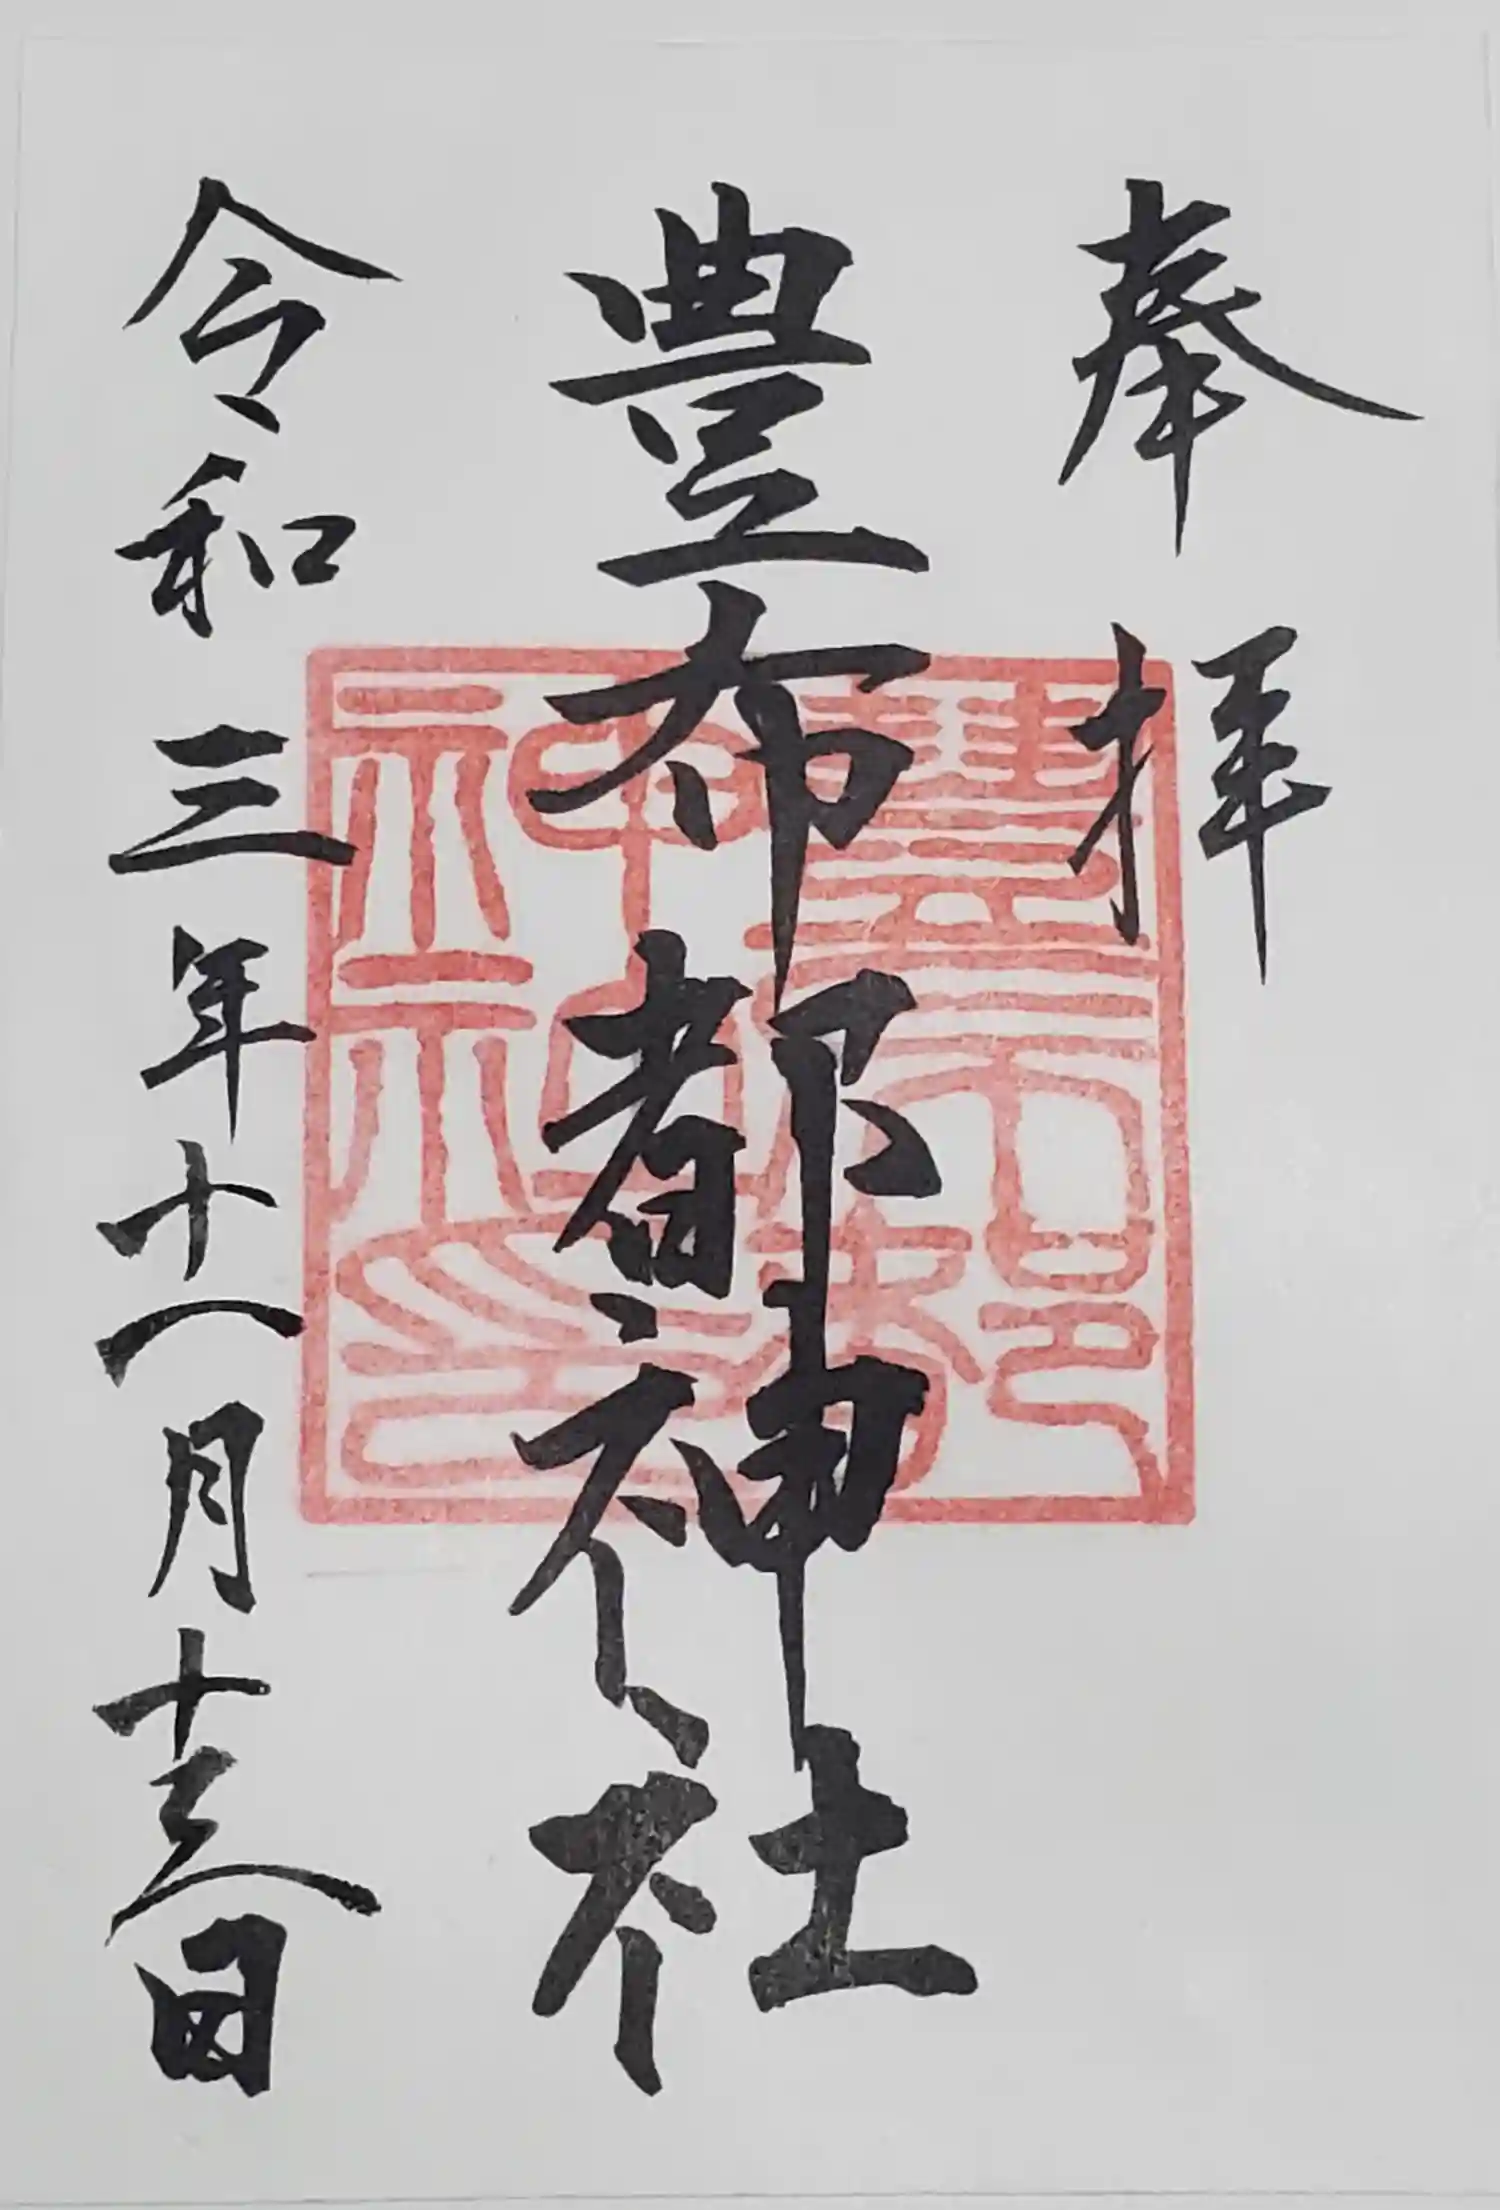 奉拝
豊布都神社
令和三年十一月十三日
豊布都
神社
神社印